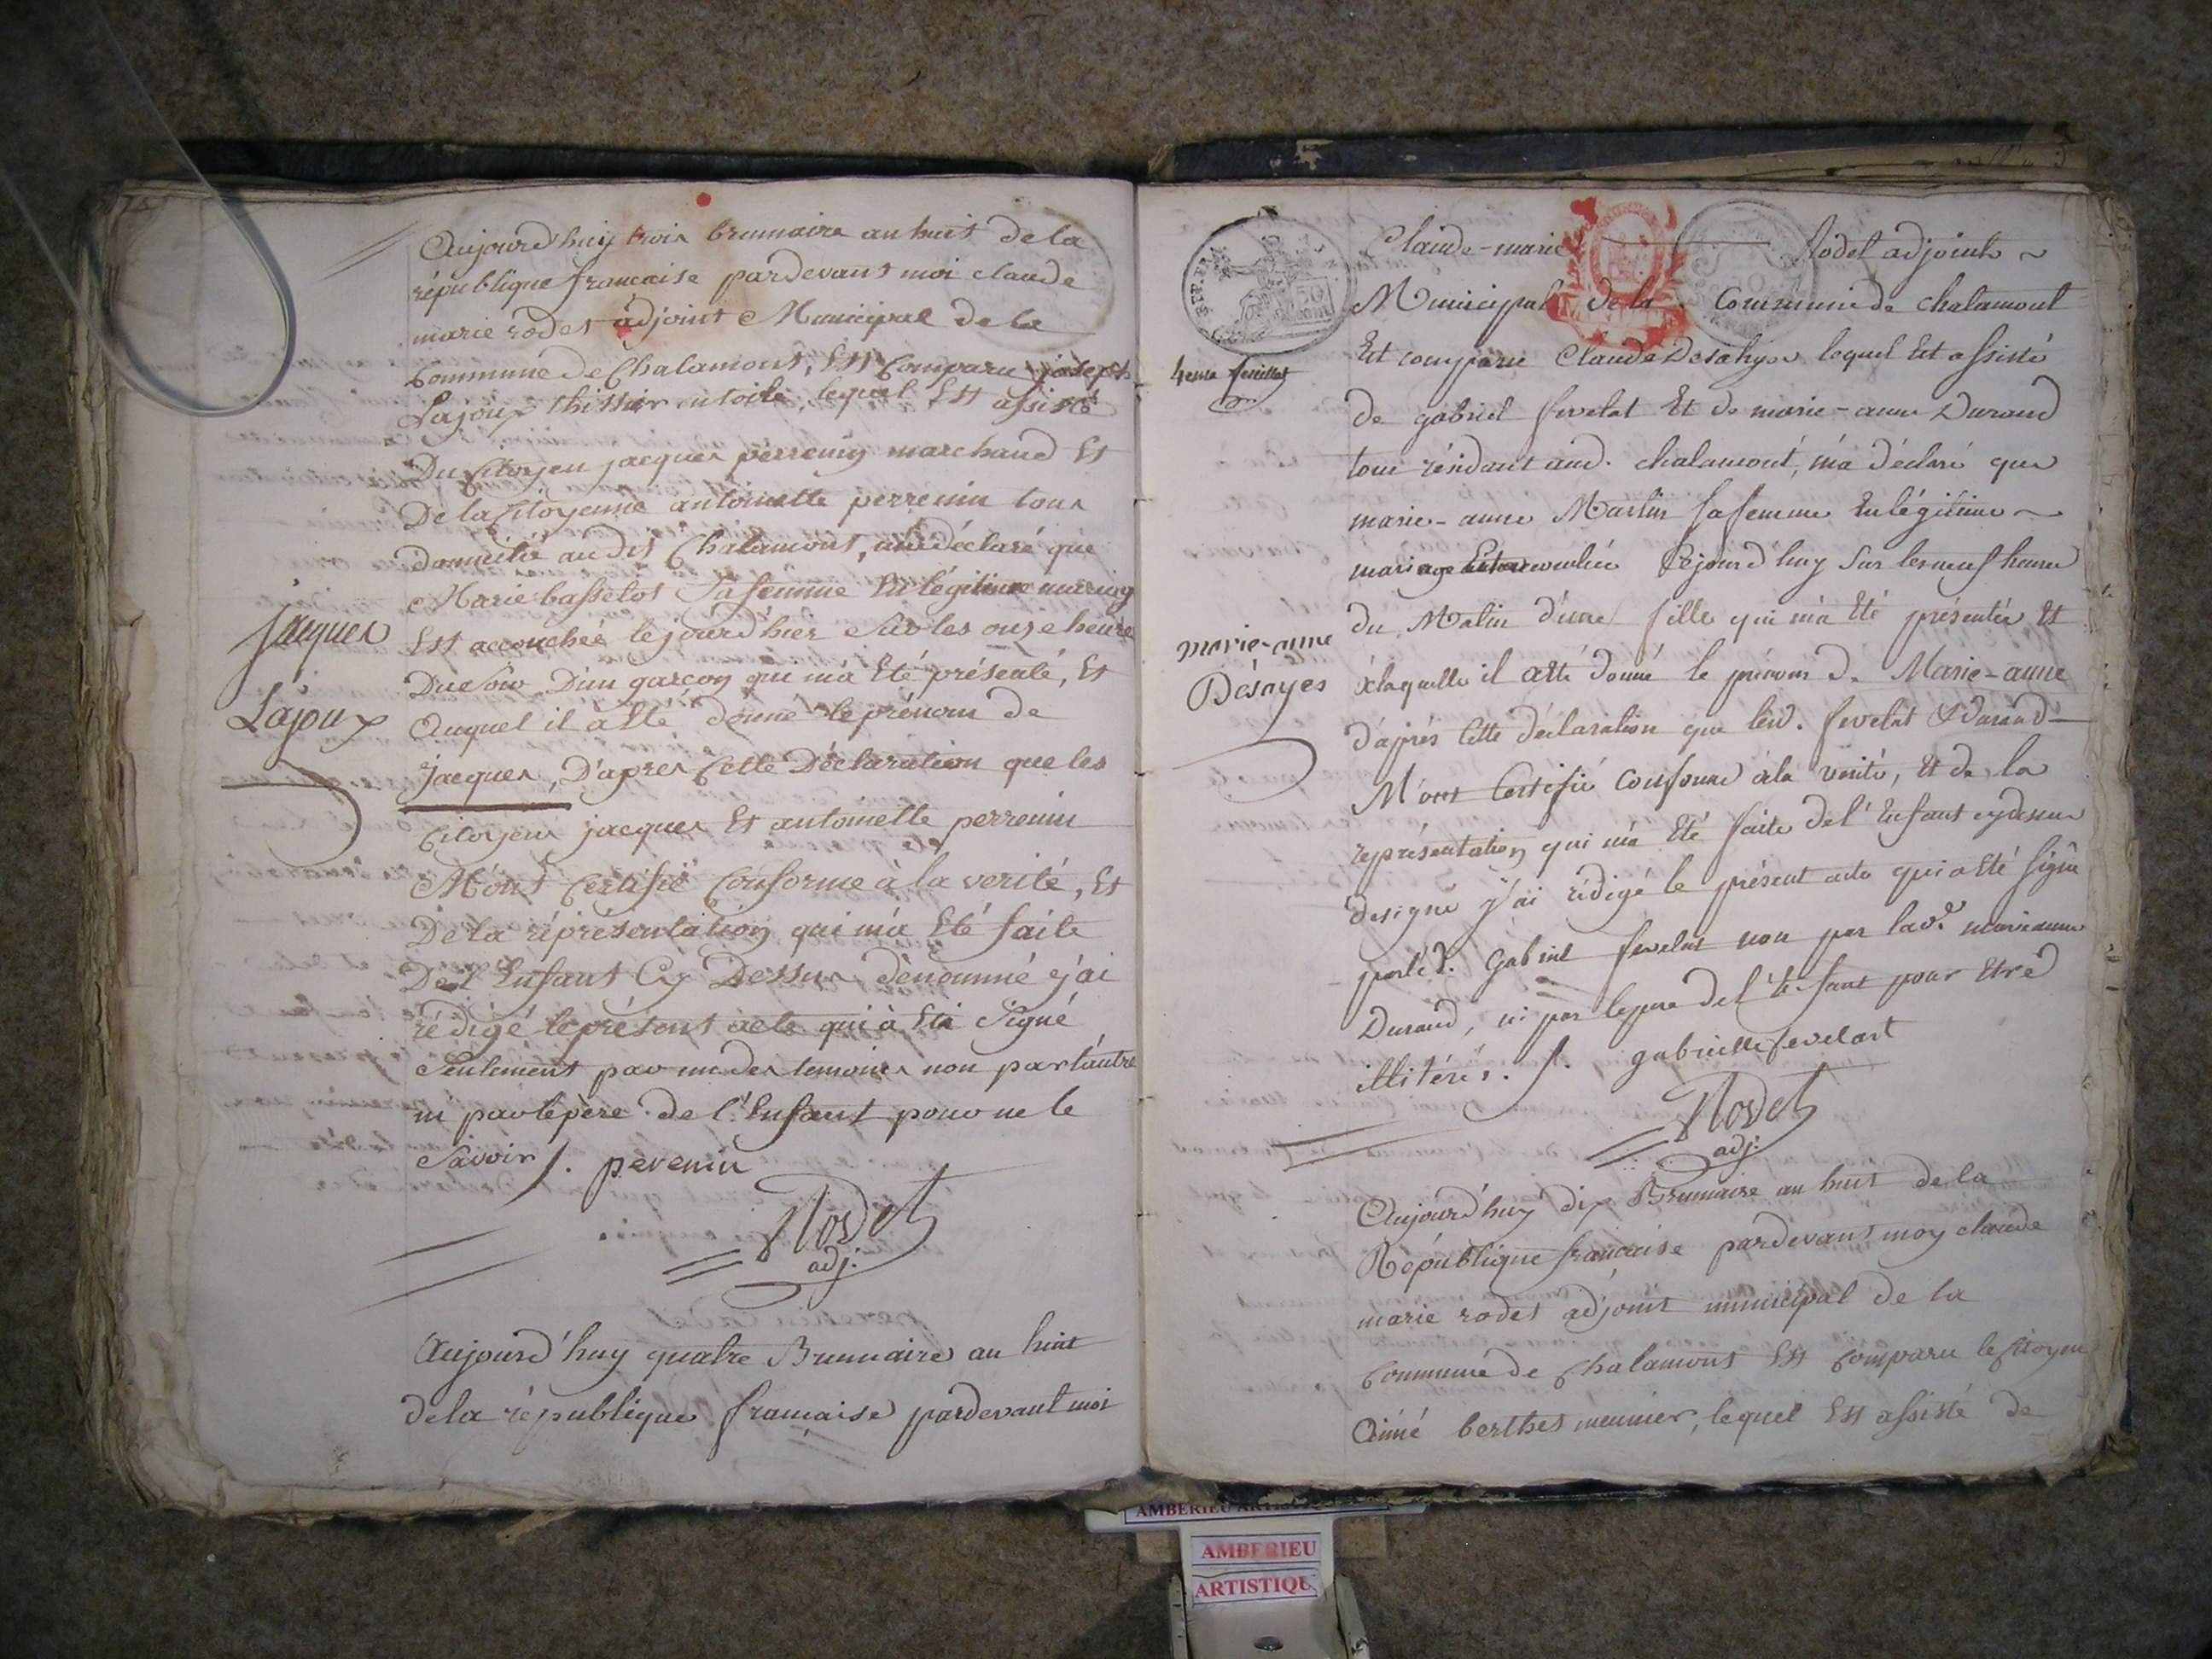 Aujourd'huy trois brumaire an huit de la
république francaise pardevant moi claude
marie rodet adjoint Municipal de la
Commune de Chalamont, Est Comparu joseph
Lajoux thissier en toile, lequel Est assisté
Du Citoyen jacques perrenin marchand Et
De la Citoyenne antoinette perrenin tous
domicilié audit Chalamont, m'a déclaré que
Marie basselot Sa femme En légitime mariag
Est accouchée le jourd'hier Sur les onze heure
Du Soir D'un garçon qui m'a Eté présenté, Et
Jacques
Auquel il a Eté donné le prénom de
Lajoux
jacques, D'apres Cette Déclaration que les
Citoyens jacques Et antoinette perrenin
M'ont Certifié Conforme à la verité, Et
De la réprésentation qui m'a Eté faite
De l'Enfant Cy Dessus dénommé j'ai
rédigé le présent acte qui à Eté Signé
Seulement par un des temoins non par l'autre
ni par le père de l'Enfant pour ne le
Savoir ſ. perenin
Rodet
adj.
Aujourd'huy quatre Brumaire an huit
de la république française pardevant moi
4eme feuillet
Claude-marie Rodet adjoint
Municipal de la Commune de chalamont
Est comparu Claude Desahyes lequel Est assisté
de gabriel fevelat Et de marie-anne Durand
tous résidant aud. chalamont, m'a déclaré que
marie-anne Martin sa femme En légitime
mariage Est accouchée Cejourd'huy Sur les neuf heures
du Matin d'une fille qui m'a Eté présentée Et
marie-anne
Désayes
à laquelle il a Eté donné le prénom de Marie-anne
d'après Cette déclaration que lesd. fevelat & durand
M'ont Certifié Conforme à la verité, Et de la
représentation qui m'a Eté faite de l'Enfant cydessus
designé j'ai rédigé le présent acte qui a Eté Signé
par led. Gabriel fevelat non par lad.e marieanne
Durand, ni par le pere de l'Enfant pour Etre
illitérés. ſ. gabrielle fevelart
Rodet
adj.
Aujourd'huy dix Brumaire an huit de la
République française pardevant moy claude
marie rodet adjoint municipal de la
Commune de Chalamont Est Comparu le Citoyen
Aimé berthet meunier, lequel Est assisté de
AMBERIEU
AMBERIEU
ARTISTIQU